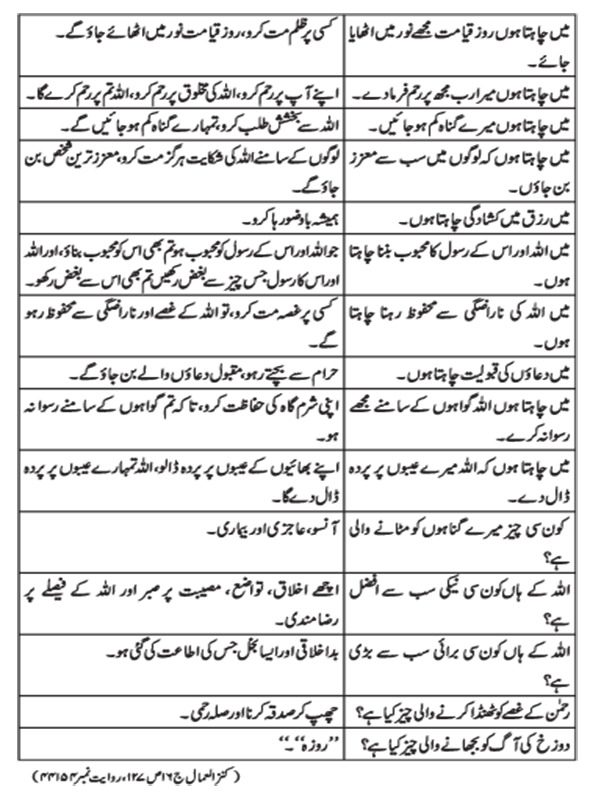 میں چاہتا ہوں روز قیامت مجھے نور میں اٹھایا
جائے۔
کسی پر ظلم مت کرو، روز قیامت نور میں اٹھائے جاؤ گے۔
میں چاہتا ہوں میرا رب مجھ پر رحم فرما دے۔
اپنے آپ پر رحم کرو، اللہ کی مخلوق پر رحم کرو، اللہ تم پر رحم کرے گا۔
میں چاہتا ہوں میرے گناہ کم ہو جائیں۔
اللہ سے بخشش طلب کرو، تمہارے گناہ کم ہو جائیں گے۔
میں چاہتا ہوں کہ لوگوں میں سب سے معزز
بن جاؤں۔
لوگوں کے سامنے اللہ کی شکایت ہرگز مت کرو، معزز ترین شخص بن
جاؤ گے۔
میں رزق میں کشادگی چاہتا ہوں۔
ہمیشہ باوضو رہا کرو۔
میں اللہ اور اس کے رسول کا محبوب بننا چاہتا
ہوں۔
جو اللہ اور اس کے رسول کو محبوب ہو تم بھی اس کو محبوب بناؤ، اور اللہ
اور اس کا رسول جس چیز سے بغض رکھیں تم بھی اس سے بغض رکھو۔
میں اللہ کی ناراضگی سے محفوظ رہنا چاہتا
ہوں۔
کسی پر غصہ مت کرو، تو اللہ کے غصے اور ناراضگی سے محفوظ رہو
گے۔
میں دعاؤں کی قبولیت چاہتا ہوں۔
حرام سے بچتے رہو، مقبول دعاؤں والے بن جاؤ گے۔
میں چاہتا ہوں اللہ گواہوں کے سامنے مجھے
رسوا نہ کرے۔
اپنی شرم گاہ کی حفاظت کرو، تا کہ تم گواہوں کے سامنے رسوا نہ
ہو۔
میں چاہتا ہوں کہ اللہ میرے عیبوں پر پردہ
ڈال دے۔
اپنے بھائیوں کے عیبوں پر پردہ ڈالو، اللہ تمہارے عیبوں پر پردہ
ڈال دے گا۔
کون سی چیز میرے گناہوں کو مٹانے والی
ہے؟
آنسو، عاجزی اور بیماری۔
اللہ کے ہاں کون سی نیکی سب سے افضل
ہے؟
اچھے اخلاق، تواضع، مصیبت پر صبر اور اللہ کے فیصلے پر
رضا مندی۔
اللہ کے ہاں کون سی برائی سب سے بڑی
ہے؟
بد اخلاقی اور ایسا بخل جس کی اطاعت کی گئی ہو۔
رحمٰن کے غصے کو ٹھنڈا کرنے والی چیز کیا ہے؟
چھپ کر صدقہ کرنا اور صلہ رحمی۔
دوزخ کی آگ کو بجھانے والی چیز کیا ہے؟
’’روزہ‘‘۔‘‘
(کنز العمال ج ۱۶ ص ۱۲۷، روایت نمبر ۴۴۱۵۴)